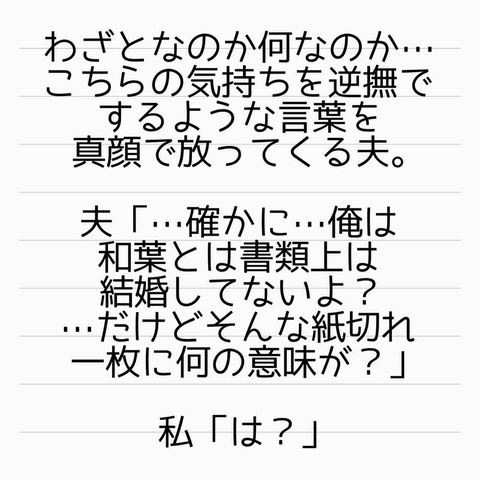 わざとなのか何なのか…
こちらの気持ちを逆撫で
するような言葉を
真顔で放ってくる夫。
夫「…確かに…俺は
和葉とは書類上は
結婚してないよ？
…だけどそんな紙切れ
一枚に何の意味が？」
私「は？」